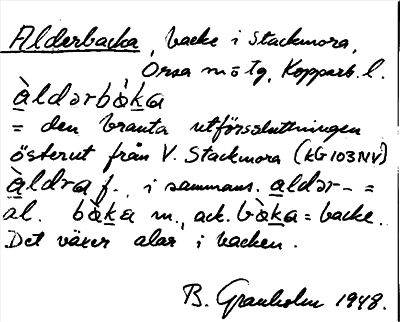 Alderbacka, backe i Stackmora,
Orsa sn o tg, Kopparb. l.
àldərbàka
= den branta utförssluttningen
österut från V. Stackmora (kG103NV)
àldra f., i sammans. aldər- =
al. bàka m., ack. bàka = backe.
Det växer alar i backen.
B. Granholm 1948.